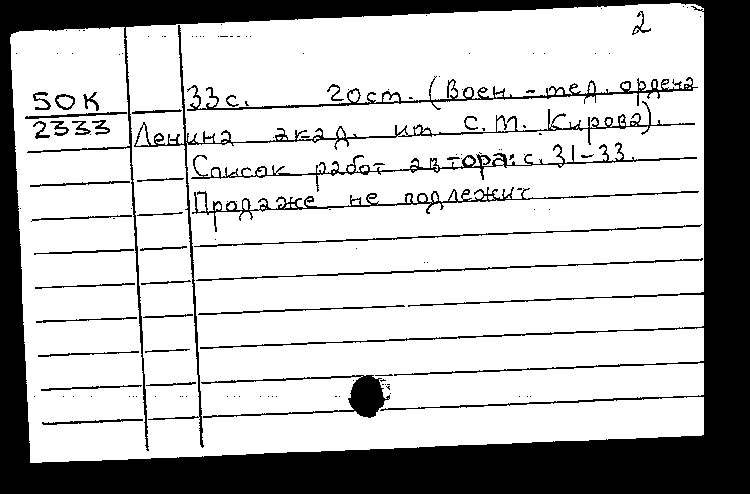 2
50К 33с. 20см. (Воен. - мед. ордена
2333 Ленина акад. им. С.М. Кирова).
Список работ автора: с. 31-33.
Продаже не подлежит